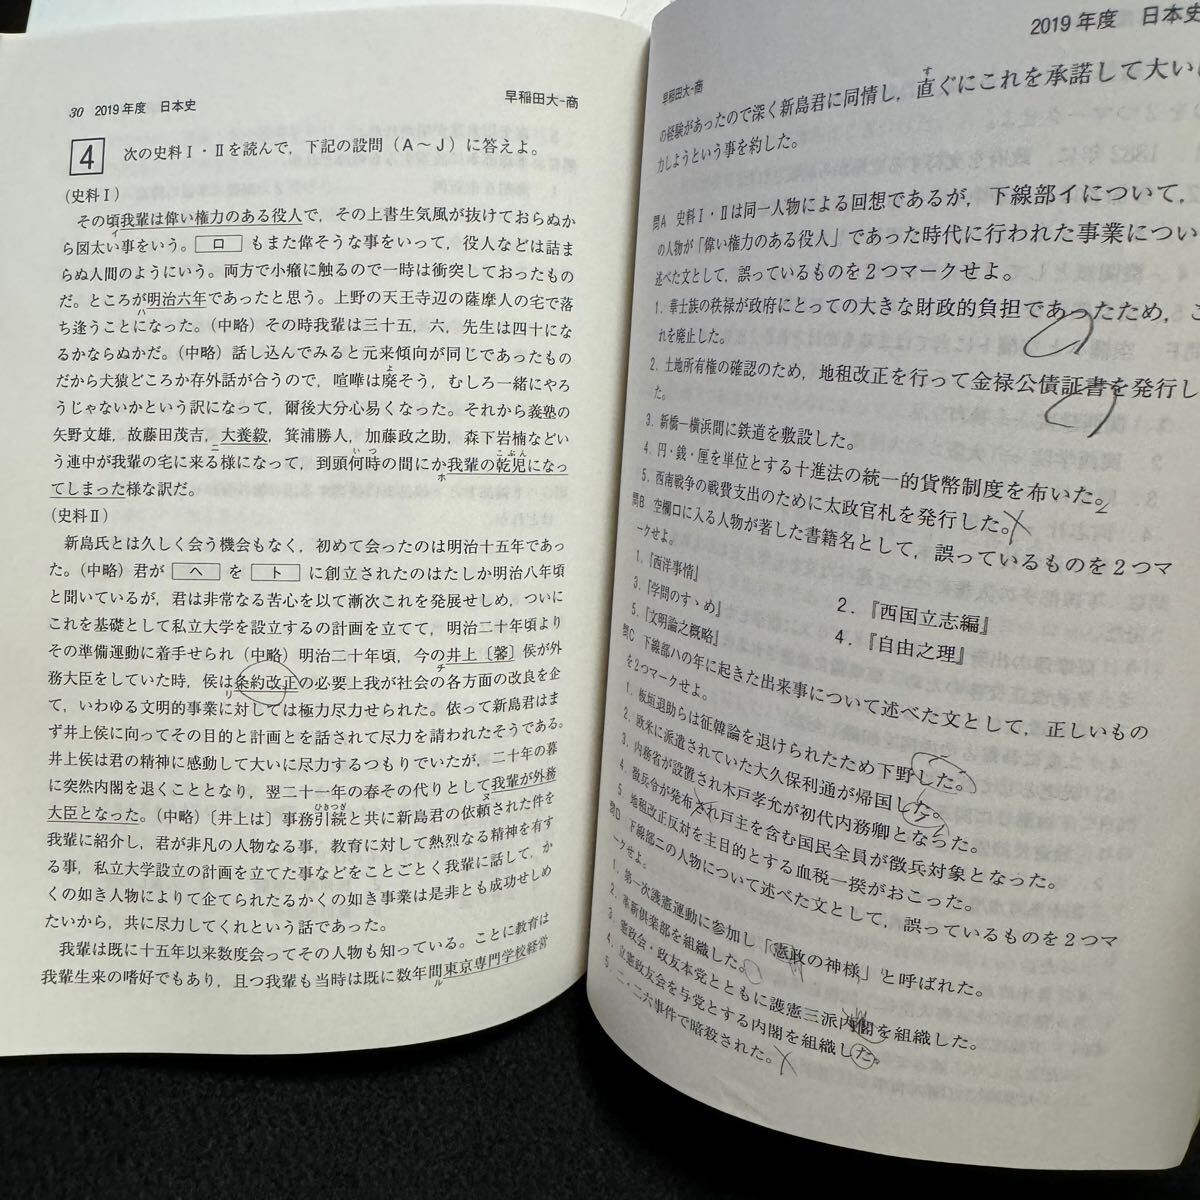 30 2019年度 日本史
早稲田大-商
4 次の史料Ⅰ・Ⅱを読んで，下記の設問（A～J）に答えよ。
（史料Ⅰ）
その頃我輩は偉い権力のある役人で，その上書生気風が抜けておらぬか
イ
ら図太い事をいう。ロもまた偉そうな事をいって，役人などは詰ま
らぬ人間のようにいう。両方で小癪に触るので一時は衝突しておったもの
だ。ところが明治六年であったと思う。上野の天王寺辺の薩摩人の宅で落
ハ
ち逢うことになった。（中略）その時我輩は三十五，六，先生は四十にな
るかならぬかだ。（中略）話し込んでみると元来傾向が同じであったもの
だから犬猿どころか存外話が合うので，喧嘩は廃そう，むしろ一緒にやろ
よ
うじゃないかという訳になって，爾後大分心易くなった。それから義塾の
矢野文雄，故藤田茂吉，犬養毅，箕浦勝人，加藤政之助，森下岩楠などい
ニ
う連中が我輩の宅に来る様になって，到頭何時の間にか我輩の乾児になっ
いつ
こぶん
ホ
てしまった様な訳だ。
（史料Ⅱ）
新島氏とは久しく会う機会もなく，初めて会ったのは明治十五年であっ
た。（中略）君がヘをトに創立されたのはたしか明治八年頃
と聞いているが，君は非常なる苦心を以て漸次これを発展せしめ，ついに
これを基礎として私立大学を設立するの計画を立てて，明治二十年頃より
その準備運動に着手せられ（中略）明治二十年頃，今の井上〔馨〕侯が外
チ
務大臣をしていた時，侯は条約改正の必要上我が社会の各方面の改良を企
リ
て，いわゆる文明的事業に対しては極力尽力せられた。依って新島君はま
ず井上侯に向ってその目的と計画とを話されて尽力を請われたそうである。
井上侯は君の精神に感動して大いに尽力するつもりでいたが，二十年の暮
に突然内閣を退くこととなり，翌二十一年の春その代りとして我輩が外務
ヌ
大臣となった。（中略）〔井上は〕事務引続と共に新島君の依頼された件を
ひきつぎ
我輩に紹介し，君が非凡の人物なる事，教育に対して熱烈なる精神を有す
る事，私立大学設立の計画を立てた事などをことごとく我輩に話して，か
くの如き人物によりて企てられたるかくの如き事業は是非とも成功せしめ
たいから，共に尽力してくれという話であった。
我輩は既に十五年以来数度会ってその人物も知っている。ことに教育は
我輩生来の嗜好でもあり，且つ我輩も当時は既に数年間東京専門学校経営
ル
早稲田大-商
2019年度 日本史
の経験があったので深く新島君に同情し，直ぐにこれを承諾して大いに
す
力しようという事を約した。
問A 史料Ⅰ・Ⅱは同一人物による回想であるが，下線部イについて，
の人物が「偉い権力のある役人」であった時代に行われた事業につい
述べた文として，誤っているものを2つマークせよ。
1．華士族の秩禄が政府にとっての大きな財政的負担であったため，こ
れを廃止した。
2．土地所有権の確認のため，地租改正を行って金禄公債証書を発行し
た。
3．新橋―横浜間に鉄道を敷設した。
4．円・銭・厘を単位とする十進法の統一的貨幣制度を布いた。
5．西南戦争の戦費支出のために太政官札を発行した。
問B 空欄ロに入る人物が著した書籍名として，誤っているものを2つマ
ークせよ。
1．『西洋事情』
2．『西国立志編』
3．『学問のすゝめ』
4．『自由之理』
5．『文明論之概略』
問C 下線部ハの年に起きた出来事について述べた文として，正しいもの
を2つマークせよ。
1．板垣退助らは征韓論を退けられたため下野した。
2．欧米に派遣されていた大久保利通が帰国した。
3．内務省が設置され木戸孝允が初代内務卿となった。
4．徴兵令が発布され戸主を含む国民全員が徴兵対象となった。
5．地租改正反対を主目的とする血税一揆がおこった。
問D 下線部ニの人物について述べた文として，誤っているものを2つマ
ークせよ。
1．第一次護憲運動に参加し「憲政の神様」と呼ばれた。
2．革新倶楽部を組織した。
3．憲政会・政友本党とともに護憲三派内閣を組織した。
4．立憲政友会を与党とする内閣を組織した。
5．二・二六事件で暗殺された。